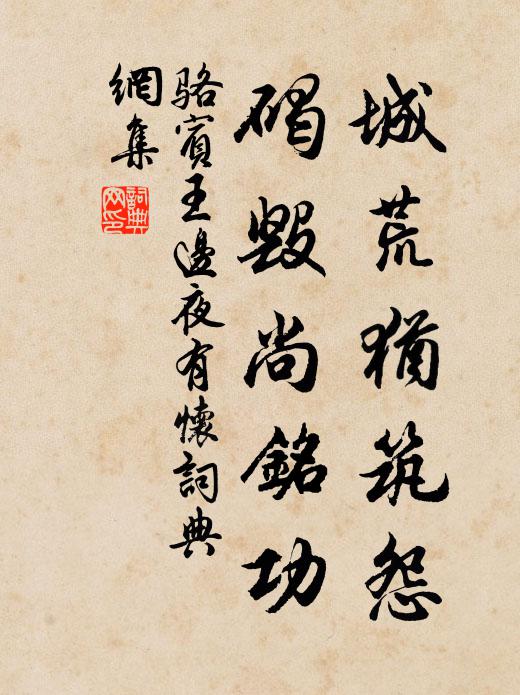 城荒猶筑怨
碣毀尚銘功
骆賓王邊夜有懷詞典
網集
詞典
网印